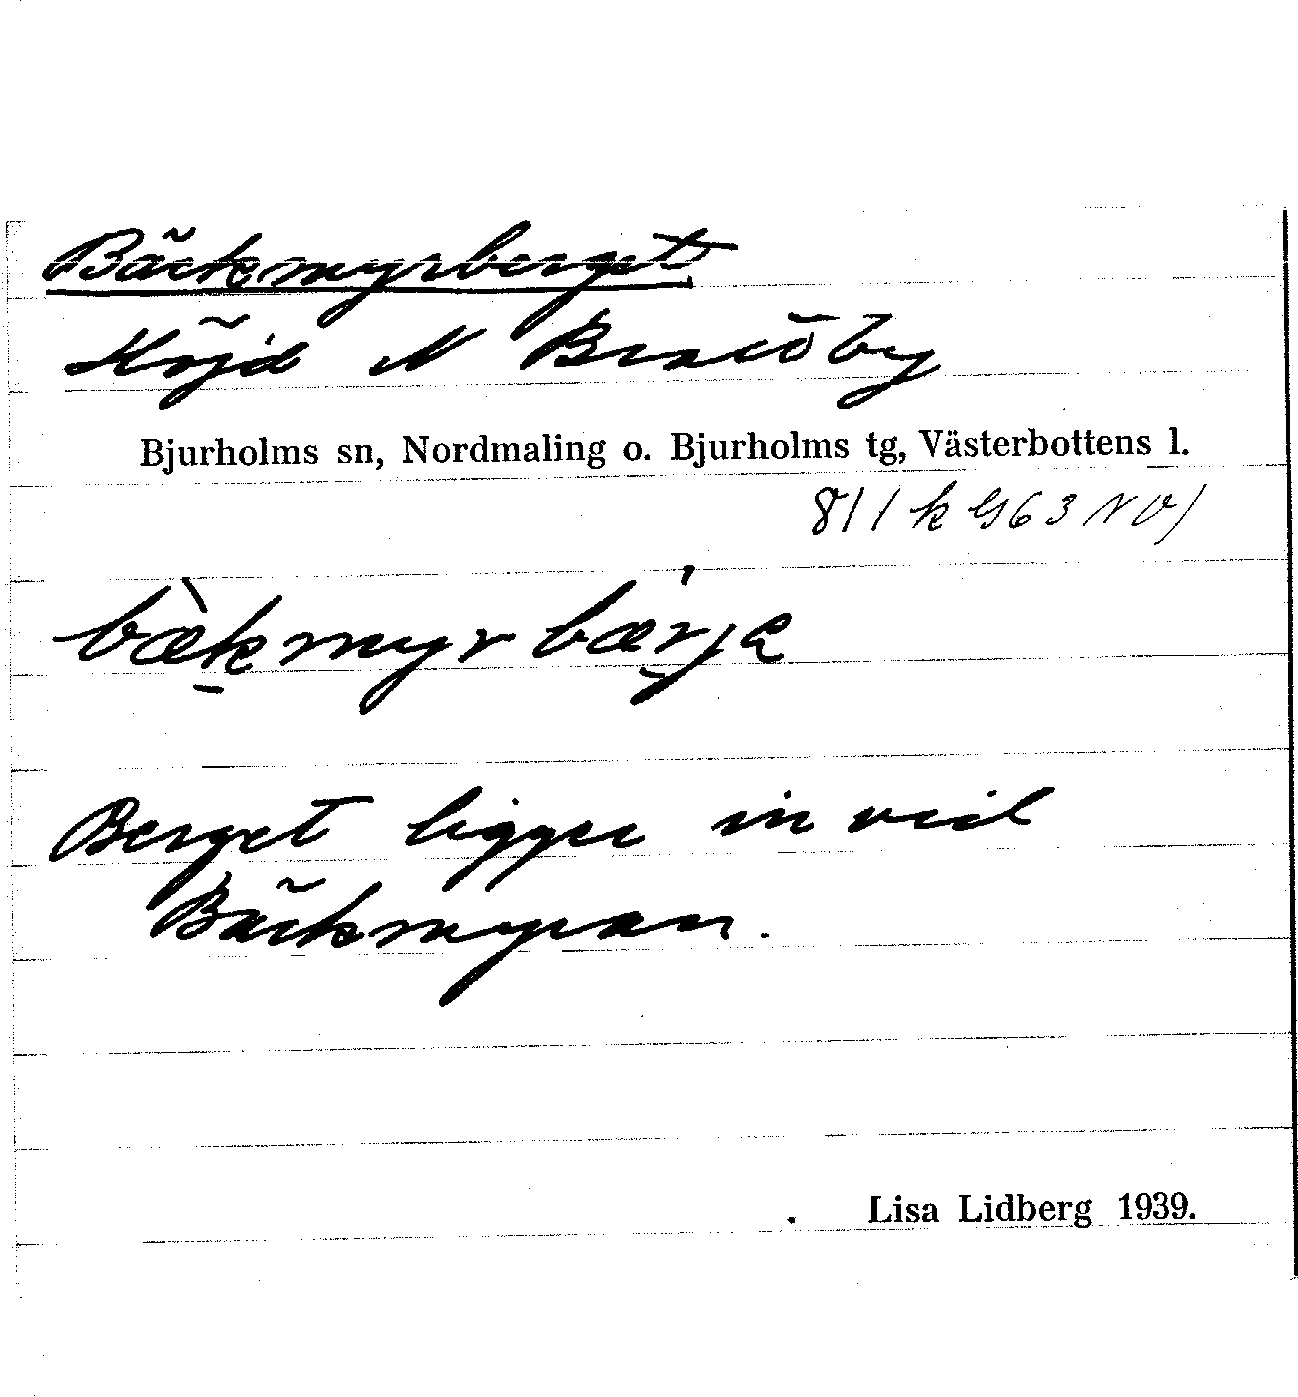 Bäckmyrberget
Höjd N Bredby
Bjurholms sn, Nordmaling o. Bjurholms tg, Västerbottens l.
811 k G63 NV)
bækmyrbærjə
Berget ligger in vid
Bäckmyran.
Lisa Lidberg 1939.